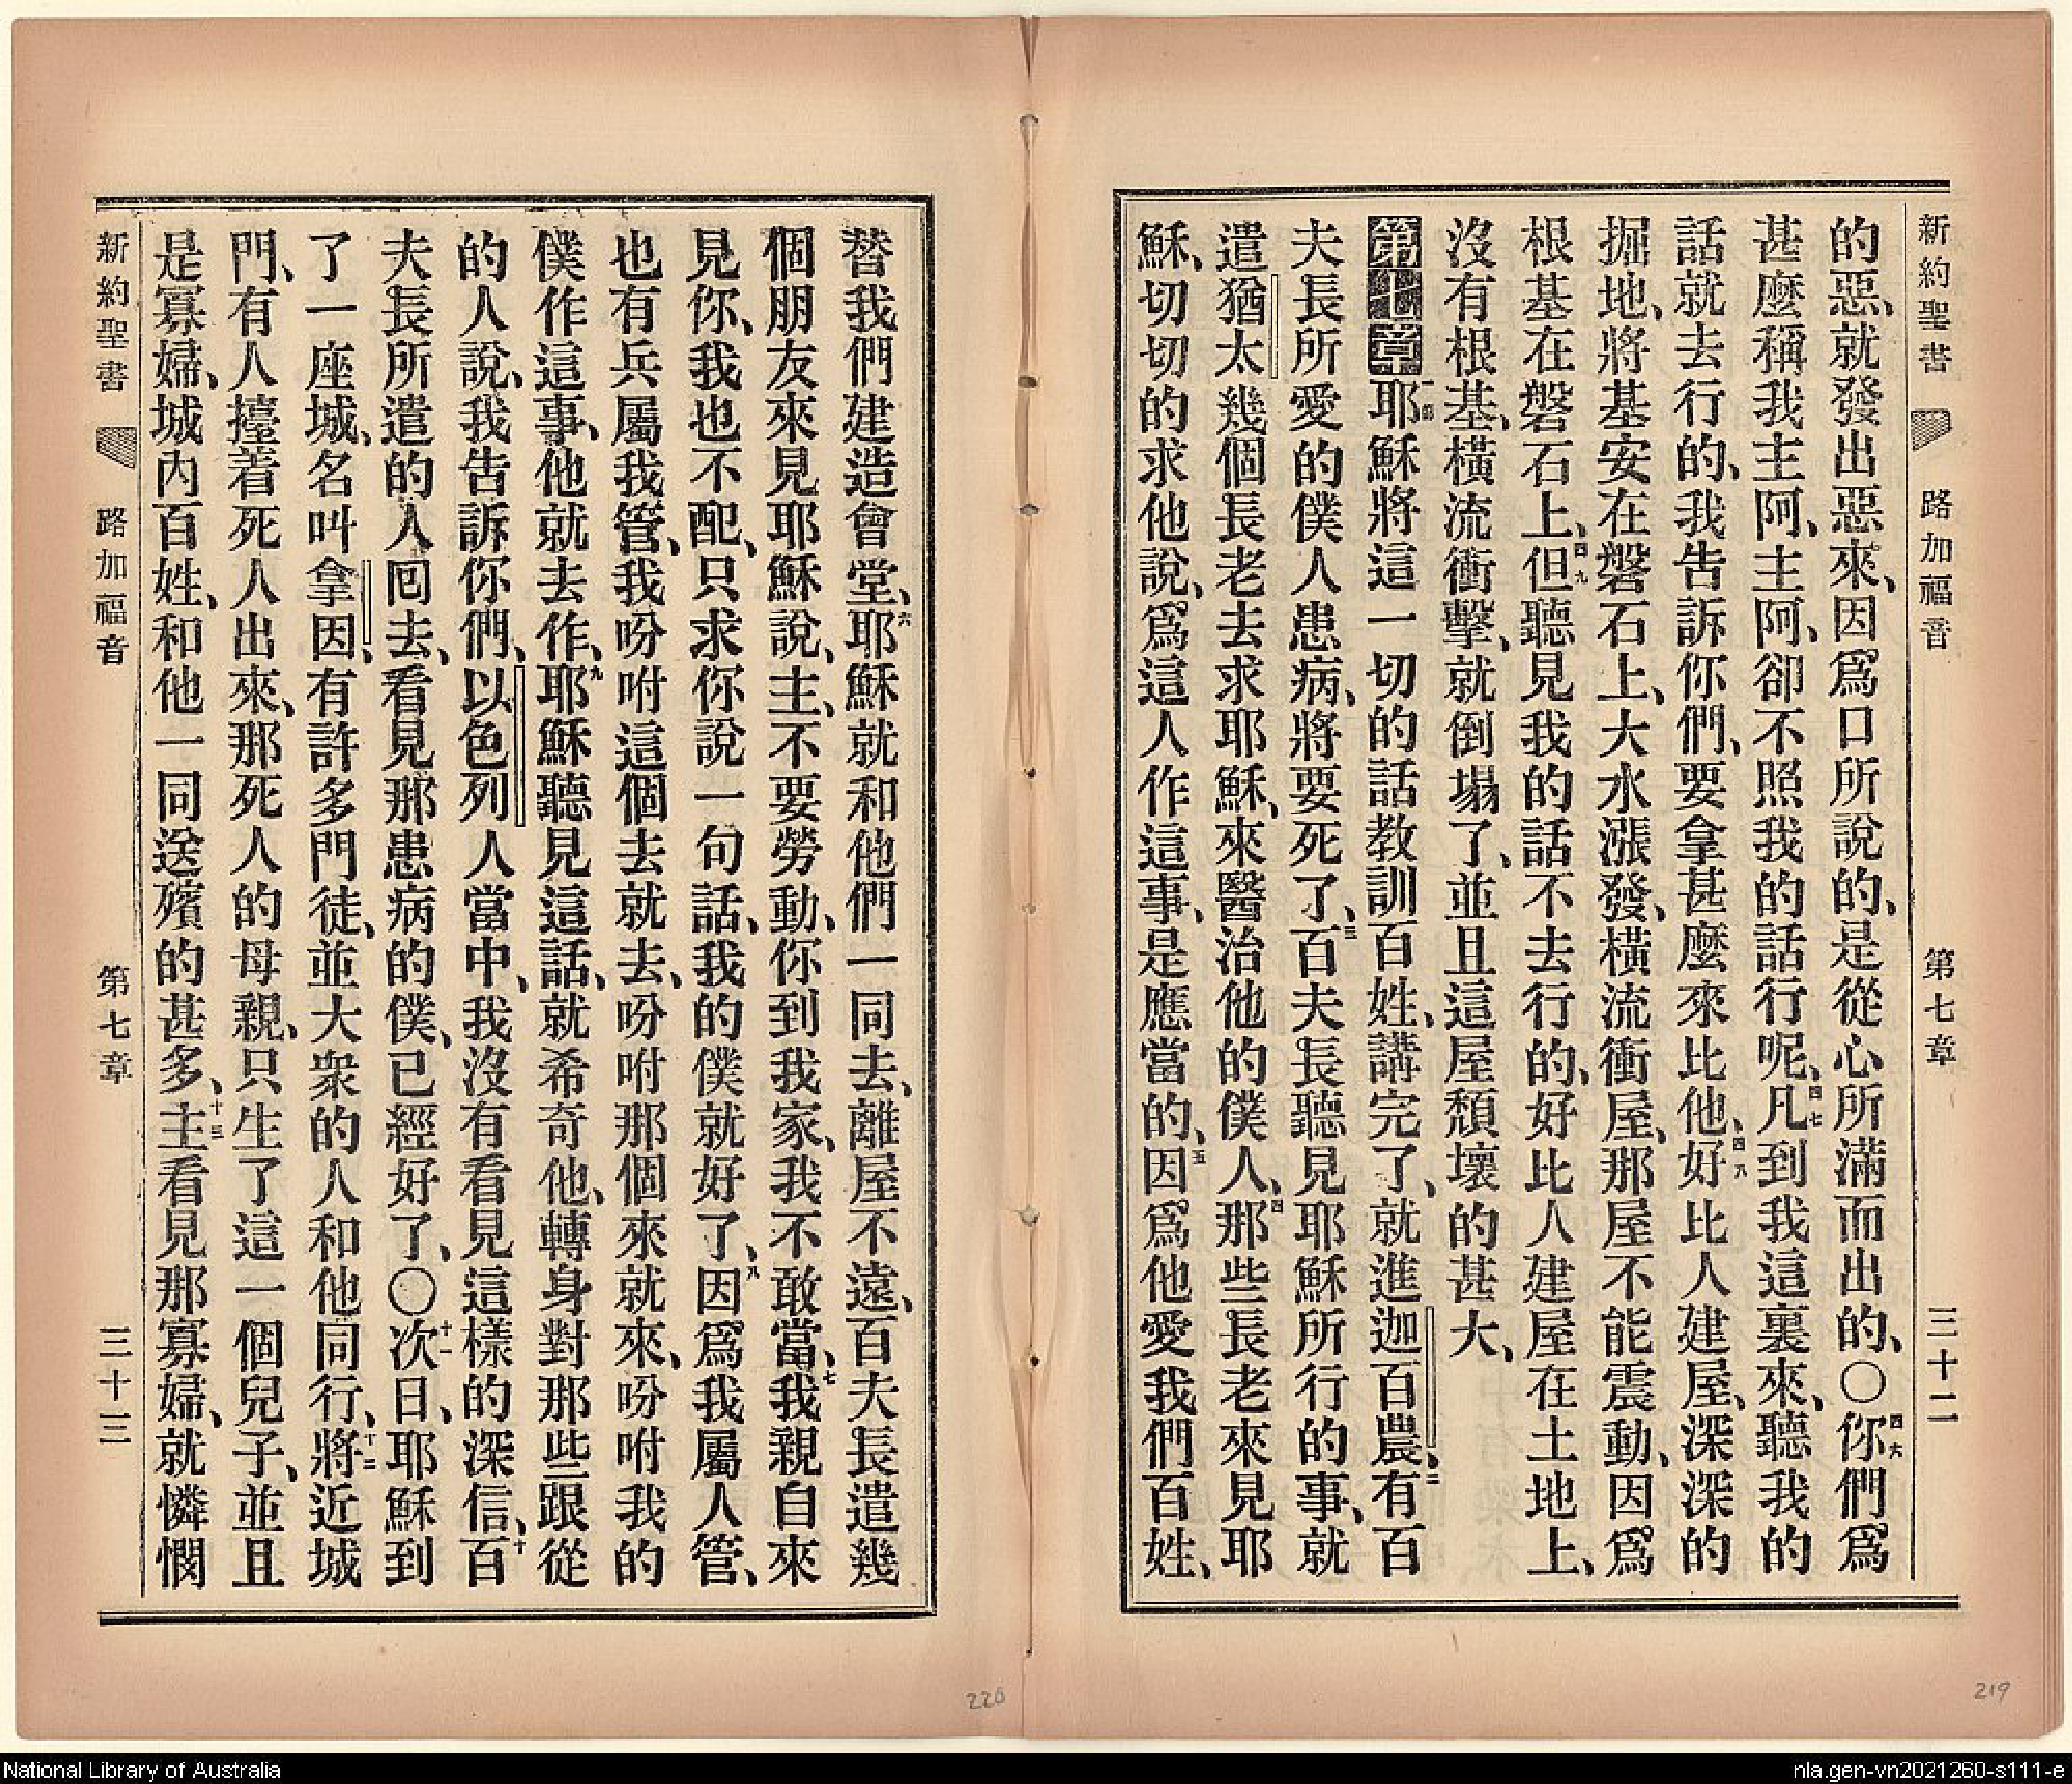 新約聖書 路加福音 第七章 三十二
的惡、就發出惡來、因爲口所說的、是從心所滿而出的、〇四六你們爲
甚麼稱我主阿、主阿、卻不照我的話行呢、四七凡到我這裏來、聽我的
話就去行的、我告訴你們、要拿甚麼來比他、四八好比人建屋、深深的
掘地、將基安在磐石上、大水漲發、橫流衝屋、那屋不能震動、因爲
根基在磐石上、四九但聽見我的話不去行的、好比人建屋在土地上、
沒有根基、橫流衝擊、就倒塌了、並且這屋頹壞的甚大、
第七章 一節耶穌將這一切的話教訓百姓、講完了、就進迦百農、二有百
夫長所愛的僕人患病、將要死了、三百夫長聽見耶穌所行的事、就
遣猶太幾個長老去求耶穌、來醫治他的僕人、四那些長老來見耶
穌、切切的求他說、爲這人作這事、是應當的、五因爲他愛我們百姓、
替我們建造會堂、六耶穌就和他們一同去、離屋不遠、百夫長遣幾
個朋友來見耶穌說、主、不要勞動、你到我家、我不敢當、七我親自來
見你、我也不配、只求你說一句話、我的僕就好了、八因爲我屬人管、
也有兵屬我管、我吩咐這個去就去、吩咐那個來就來、吩咐我的
僕作這事、他就去作、九耶穌聽見這話、就希奇他、轉身對那些跟從
的人說、我告訴你們、以色列人當中、我沒有看見這樣的深信、十百
夫長所遣的人囘去、看見那患病的僕、已經好了、〇十一次日、耶穌到
了一座城、名叫拿因、有許多門徒、並大衆的人和他同行、十二將近城
門、有人擡着死人出來、那死人的母親、只生了這一個兒子、並且
是寡婦、城內百姓、和他一同送殯的甚多、十三主看見那寡婦、就憐憫
新約聖書 路加福音 第七章 三十三
220
219
National Library of Australia
nla.gen-vn2021260-s111-e